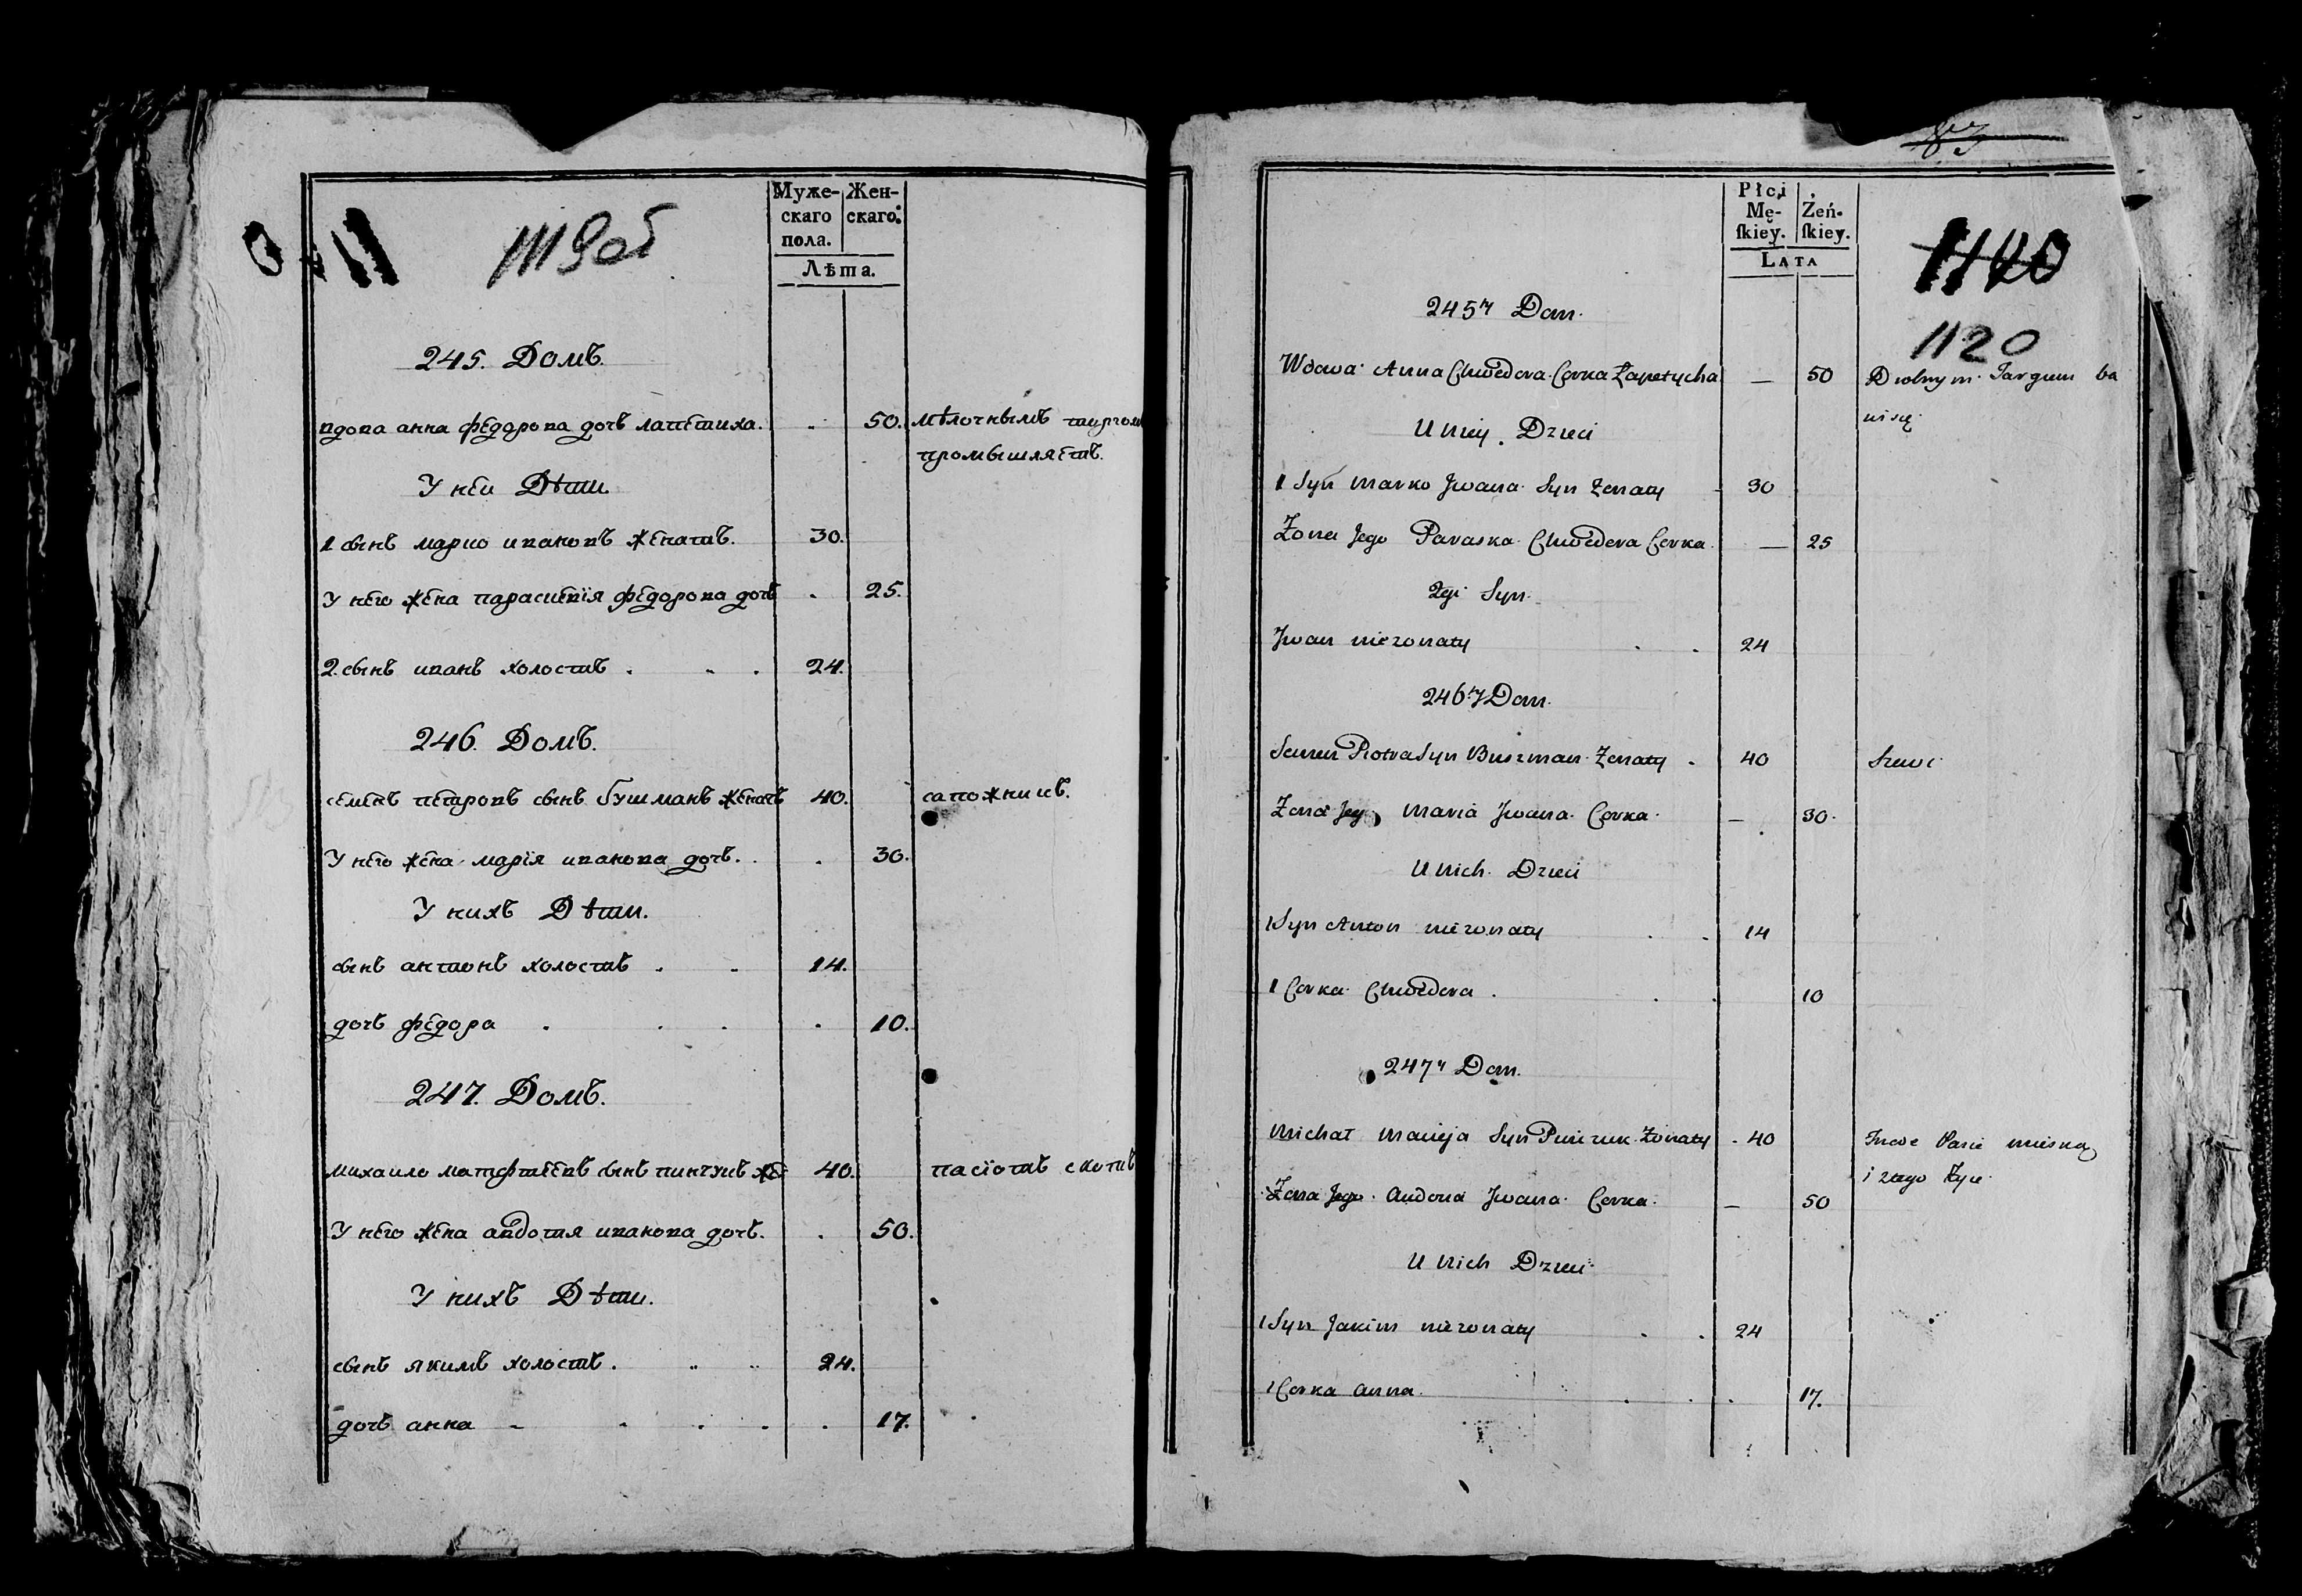 1119 об
Муже-
скаго
пола.
Жен-
скаго.
Лѣта.
245. Домъ.
вдова анна федорова дочь лапетиха. 50. мѣлочнымъ торгомъ
промышляетъ.
У неи Дѣти.
1 сынъ марко ивановъ женатъ. 30.
У него жена параскевїя федорова дочь 25.
2. сынъ иванъ холостъ 24.
246. Домъ.
семенъ петровъ сынъ бушманъ женатъ 40. сапожникъ.
У него жена марїя иванова дочь. 30.
У нихъ Дѣти.
сынъ антонъ холостъ 14.
дочь федора 10.
247. Домъ.
михаило матфеевъ сынъ пинчукъ же 40. пасїотъ скотъ
У него жена авдотия иванова дочь. 50.
У нихъ Дѣти.
сынъ якимъ холостъ. 24.
дочь анна 17.
Płci
Mę-
ſkiey.
Żeń-
ſkiey.
LATA
1120
1120
245ty Dom.
Wdowa Anna Chwedora Corka Łapetycha — 50 Drobnym Targiem ba
wi się
U niey Dzieci
1 Syn Marko Jwana Syn Żonaty 30
Żona Jego Paraska Chwedora Corka — 25
2gi Syn
Jwan nieżonaty 24
246ty Dom.
Semen Piotra Syn Buszman Żonaty 40 Szewc
Żona Jego Maria Jwana Corka — 30
U nich Dzieci
1 Syn Anton nieżonaty 14
1 Corka Chwedora 10
247y Dom.
Michał Macieja Syn Pinczuk Żonaty 40 Pasie
i z tego żyie
Żona Jego Jwana Corka — 50
U nich Dzieci
1 Syn Jakim nieżonaty 24
1 Corka Anna 17.